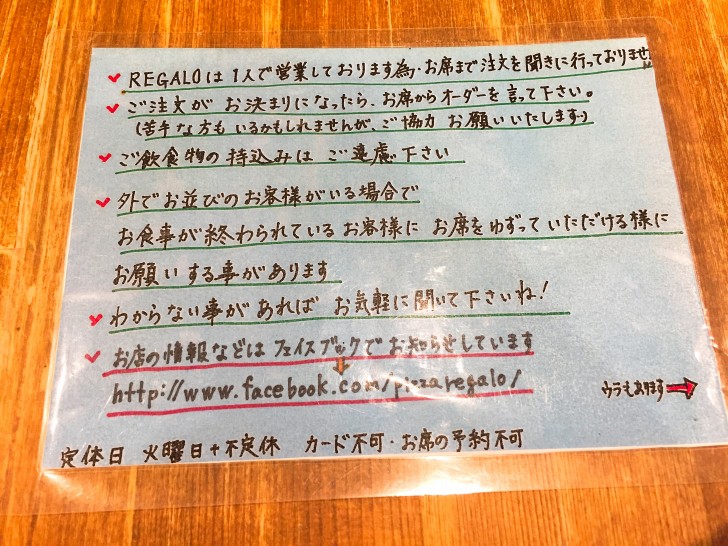 ✓ REGALOは1人で営業しております為・お席まで注文を聞きに行っておりません
✓ ご注文が お決まりになったら、お席からオーダーを言って下さい。
(苦手な方も いるかもしれませんが、ご協力 お願いいたします)
✓ ご飲食物の 持込みは ご遠慮 下さい
✓ 外でお並びのお客様がいる場合で
お食事が終わられているお客様に お席をゆずって いただける様に
お願い する事があります
✓ わからない事が あれば お気軽に聞いて下さいね!
✓ お店の情報などは フェイスブックで お知らせしています
http://www.facebook.com/pizzaregalo/
ウラもあります→
定休日 火曜日+不定休 カード不可・お席の予約不可